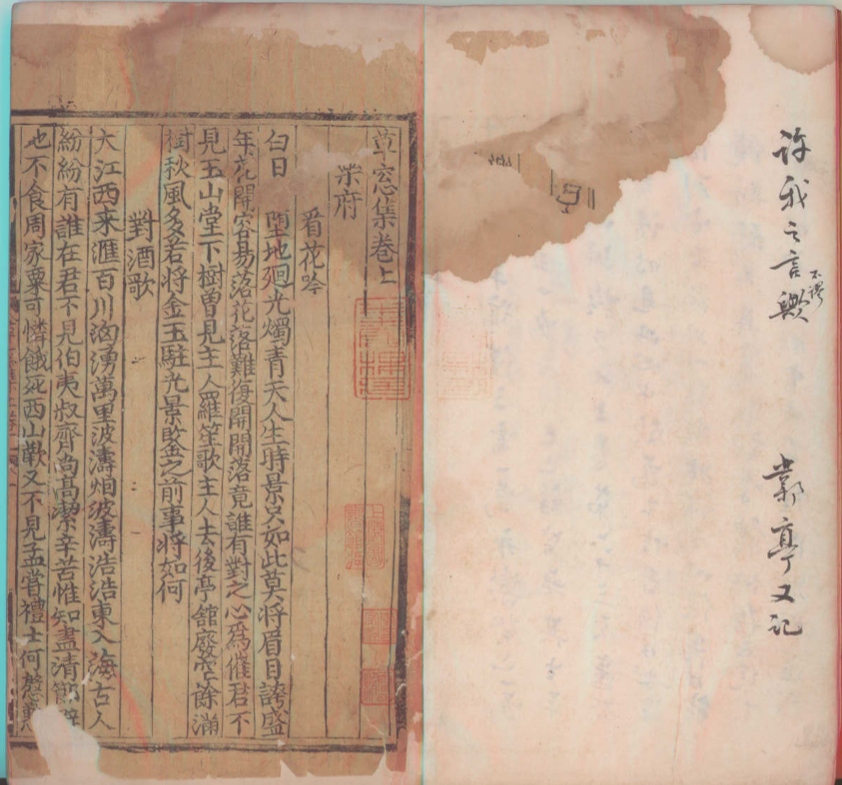 許我之言不謬歟
亭又記
草窓集卷上
樂府
看花吟
白日 堕地廻光燭青天人生時景只如此莫將眉目誇盛
年花開容易落花落難復開開落竟誰有對之心爲催君不
見玉山堂下樹曽見主人羅笙歌主人去後亭舘廢空餘滿
樹秋風多若將金玉駐光景鍳之前事將如何
對酒歌
大江西来滙百川洶湧萬里波濤烟波濤浩浩東入海古人
紛紛有誰在君不見伯夷叔齊尚髙潔辛苦惟知盡清節
也不食周家粟可憐餓死西山蕨又不見孟嘗禮士何慇